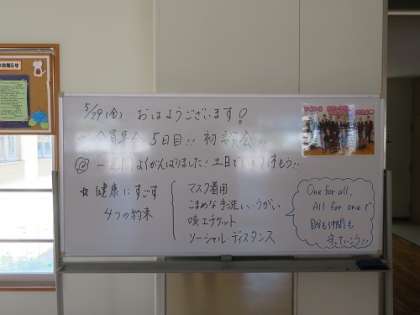 5/29(金) おはようございます!
5日目!! 初部会!!
一週間よくがんばりました! 土日で
☆ 健康にすごす
4つの約束
マスク着用
こまめな手洗い・うがい
咳エチケット
ソーシャルディスタンス
One for all,
All for one で
自分も仲間も
守っていこう!!